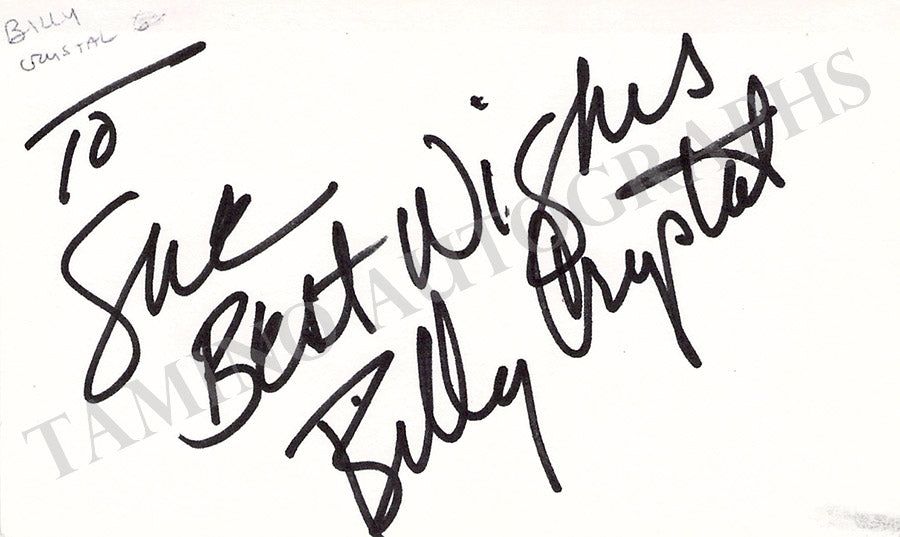 BILLY
CRYSTAL
To
Sue
Best Wishes
Billy Crystal
TAMINO AUTOGRAPHS